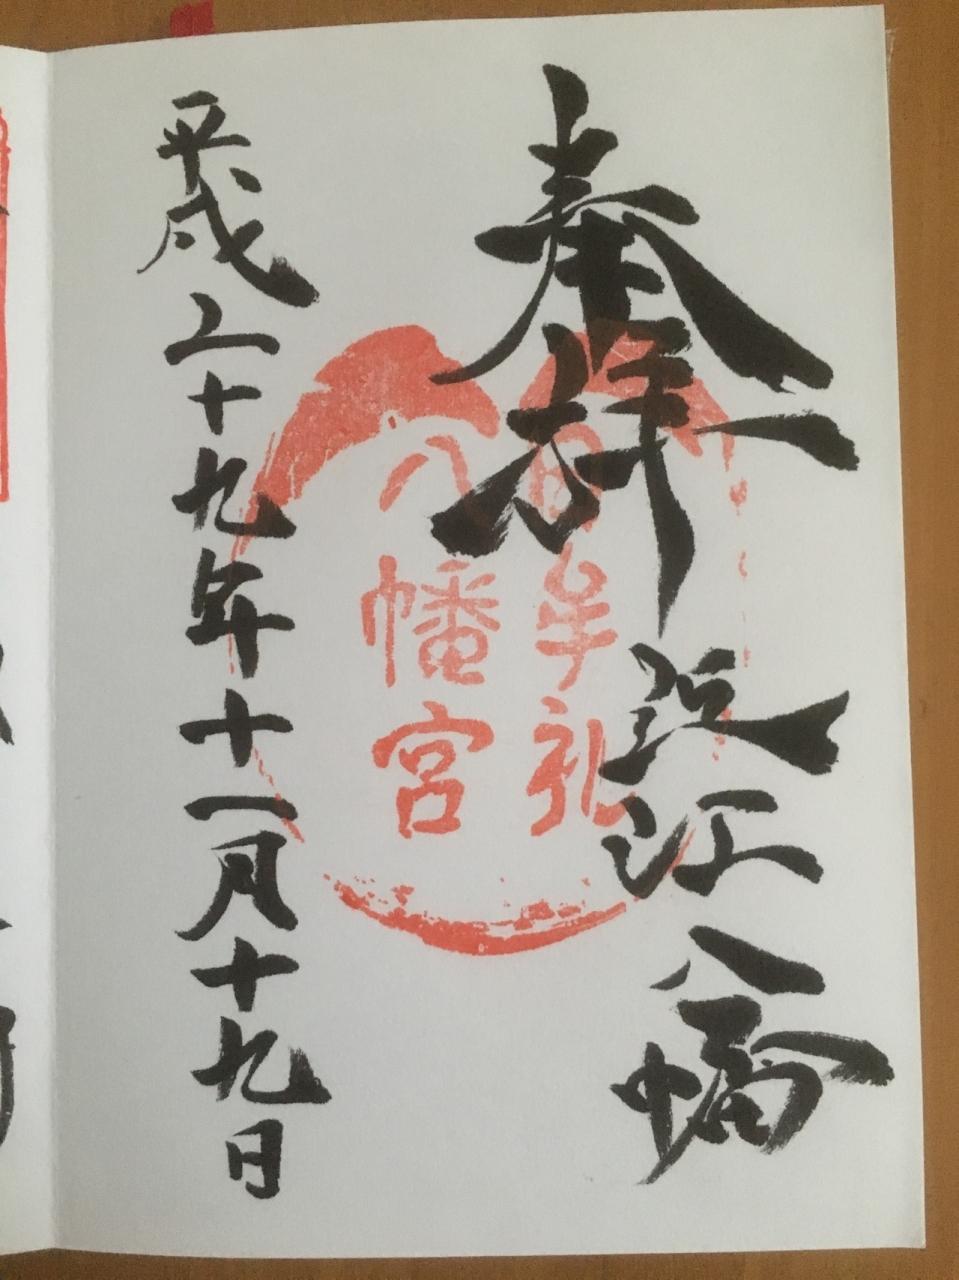 奉拝
近江八幡
日牟礼
八幡宮
平成二十九年十一月十九日